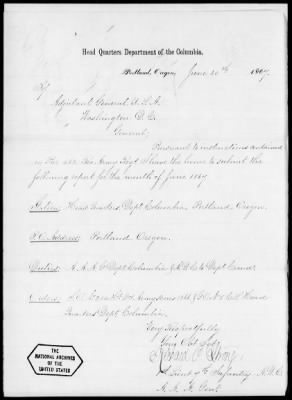 Head Quarters Department of the Columbia,
Portland, Oregon, June 30th 1867.
Adjutant General, U.S.A.
Washington D.C.
General,
Pursuant to instructions contained
in Par 468, Rev. Army Regs I have the honor to submit the
following report for the month of June 1867
Station; Head Quarters Dept Columbia, Portland, Oregon.
P.O. Address; Portland Oregon.
Duties; A.A.A.G. Dept Columbia & A.D.C. to Dept Comdr.
Orders;
Quarters Dept Columbia.
Very Respectfully
Your Obt Servt
Lieut Infantry A.D.C.
A.A.A. Genl.
THE
NATIONAL ARCHIVES
OF THE
UNITED STATES